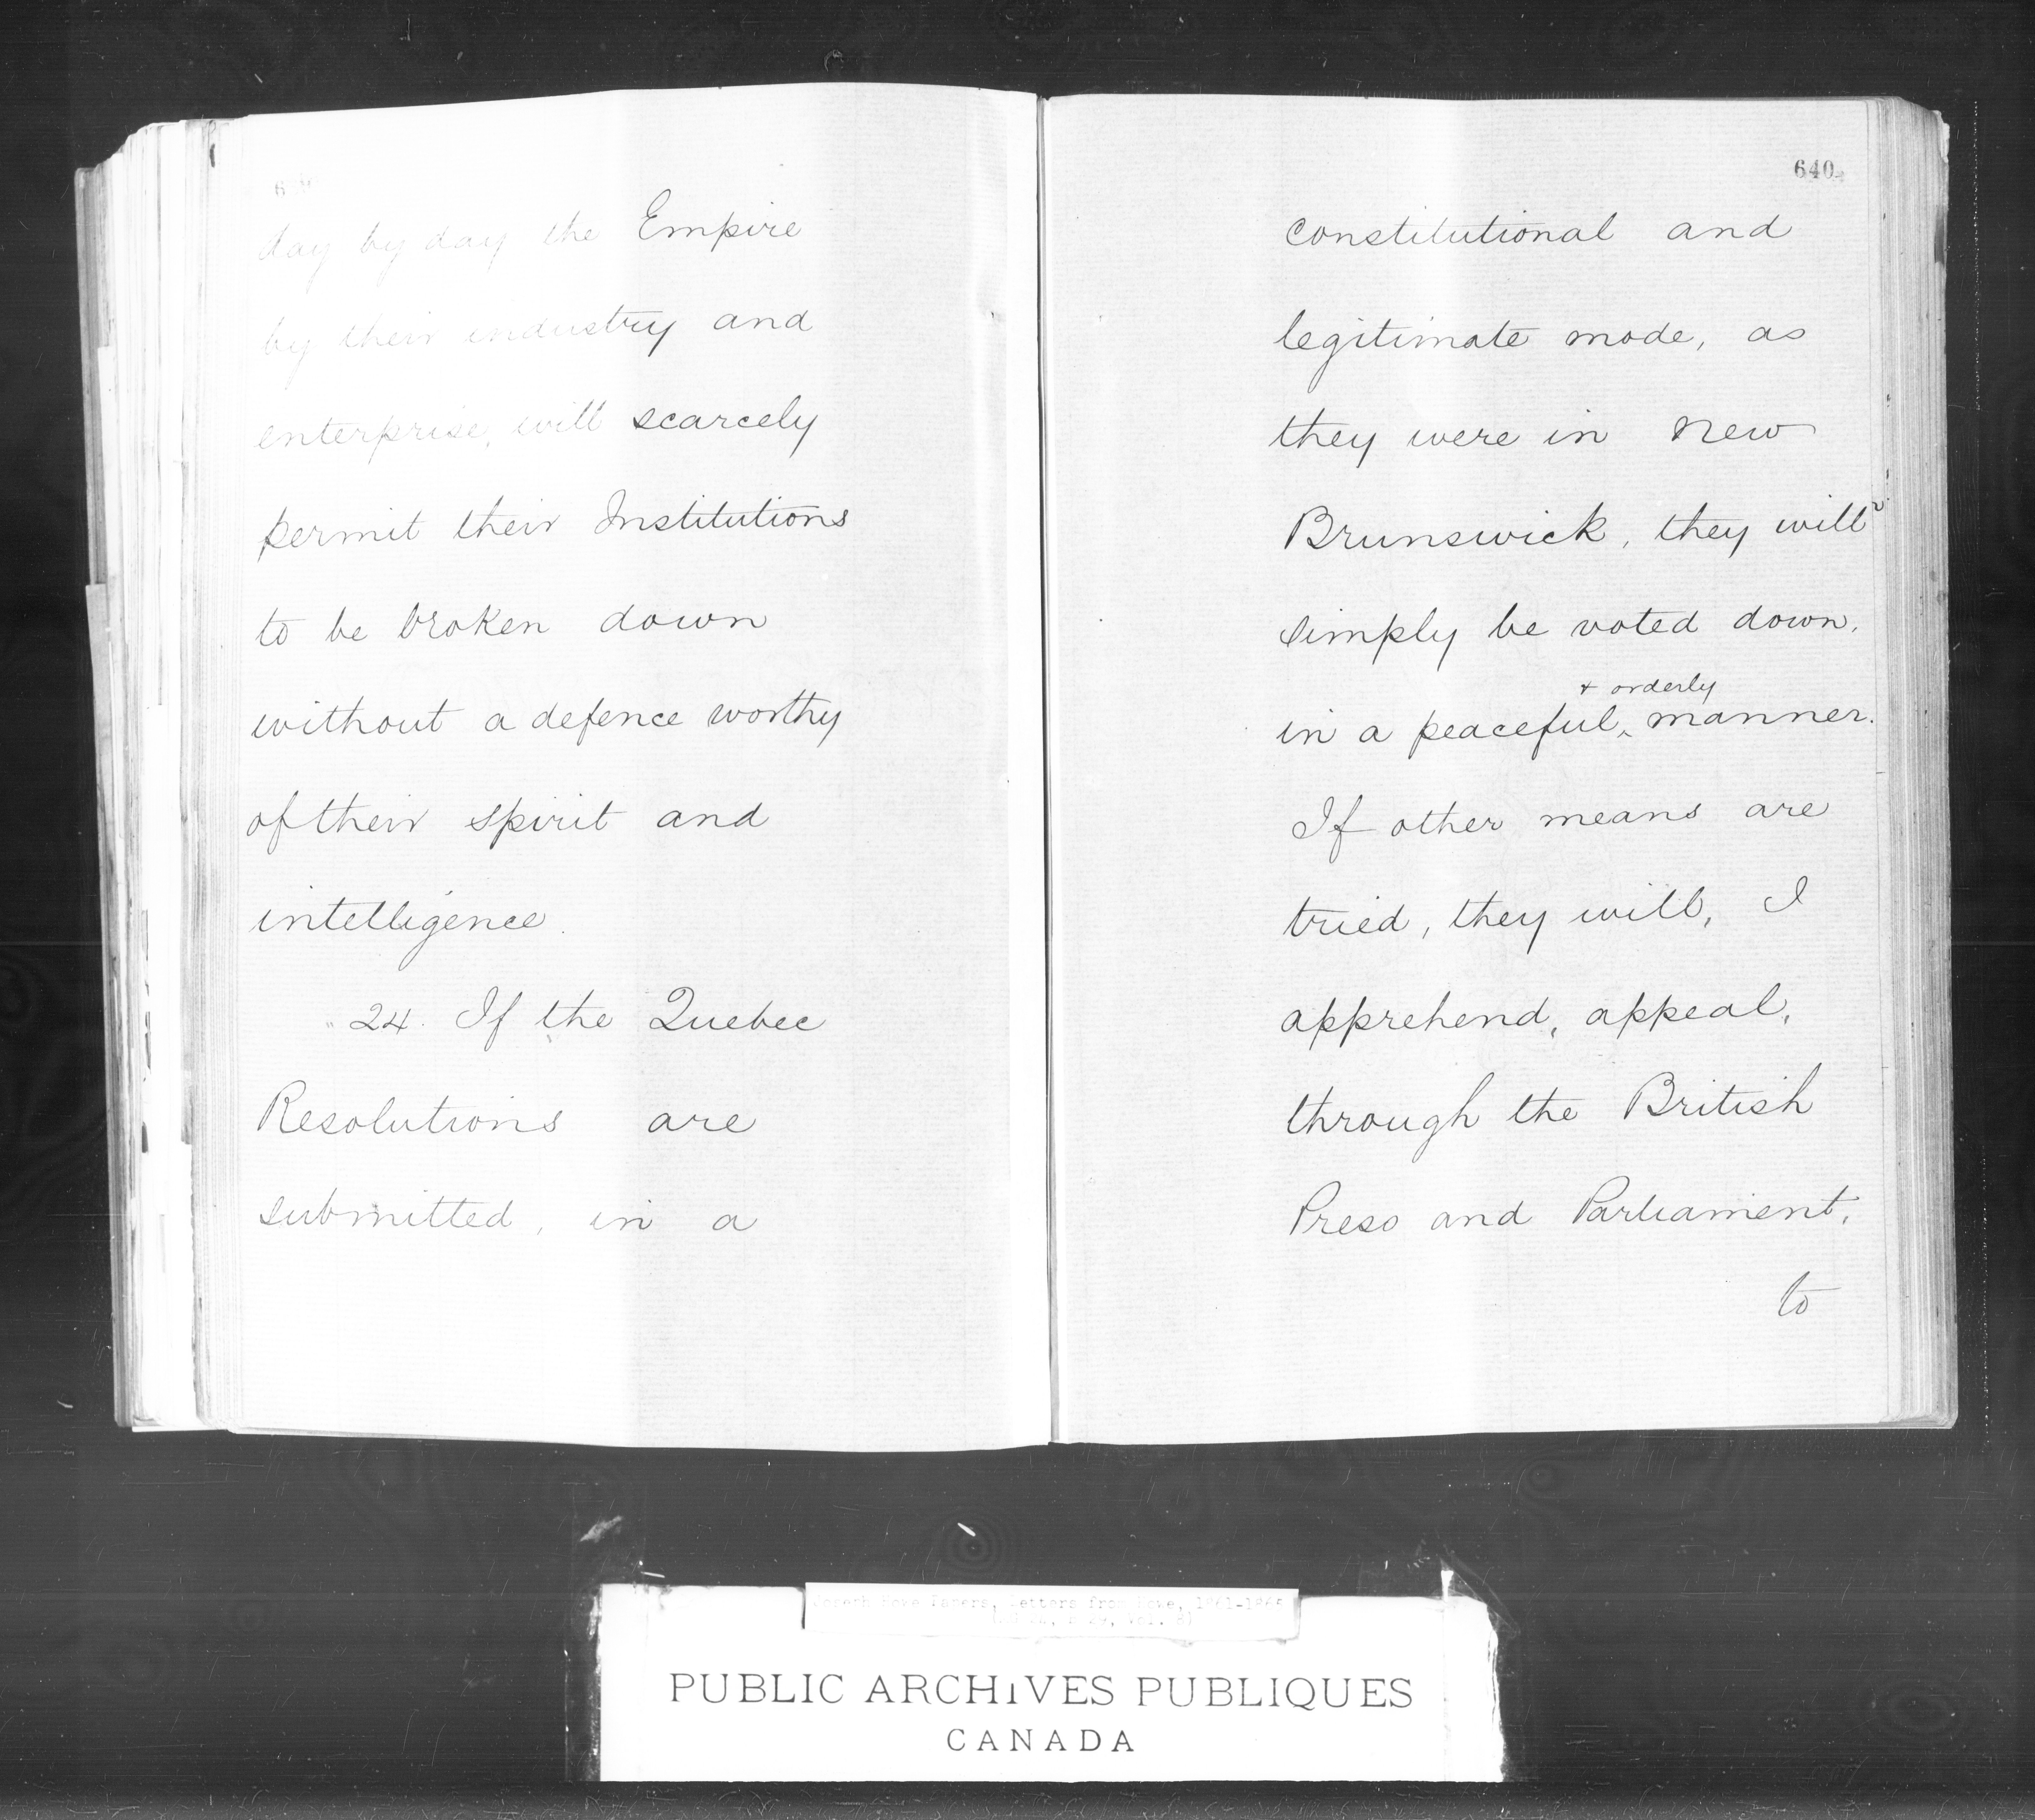 day by day the Empire
by their industry and
enterprise, will scarcely
permit their Institutions
to be broken down
without a defence worthy
of their spirit and
intelligence.
24. If the Quebec
Resolutions are
submitted, in a
640
constitutional and
legitimate mode, as
they were in New
Brunswick, they will
simply be voted down,
& orderly
in a peaceful ‸ manner.
If other means are
tried, they will, I
apprehend, appeal,
through the British
Press and Parliament,
to
Joseph Howe Papers, Letters from Howe, 1861-186
PUBLIC ARCHIVES PUBLIQUES
CANADA